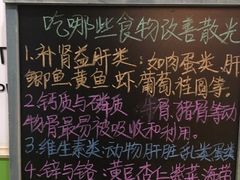 吃哪些食物改善散光
1.补肾益肝类:如肉蛋类、肝
鲫鱼黄鱼、虾、葡萄、桂圆等。
2.钙质与磷质 牛骨、猪骨等动
物骨最易被吸收和利用。
3.维生素类:动物肝脏、乳类、蛋
4.锌与铬:黄豆、杏仁、紫菜、海